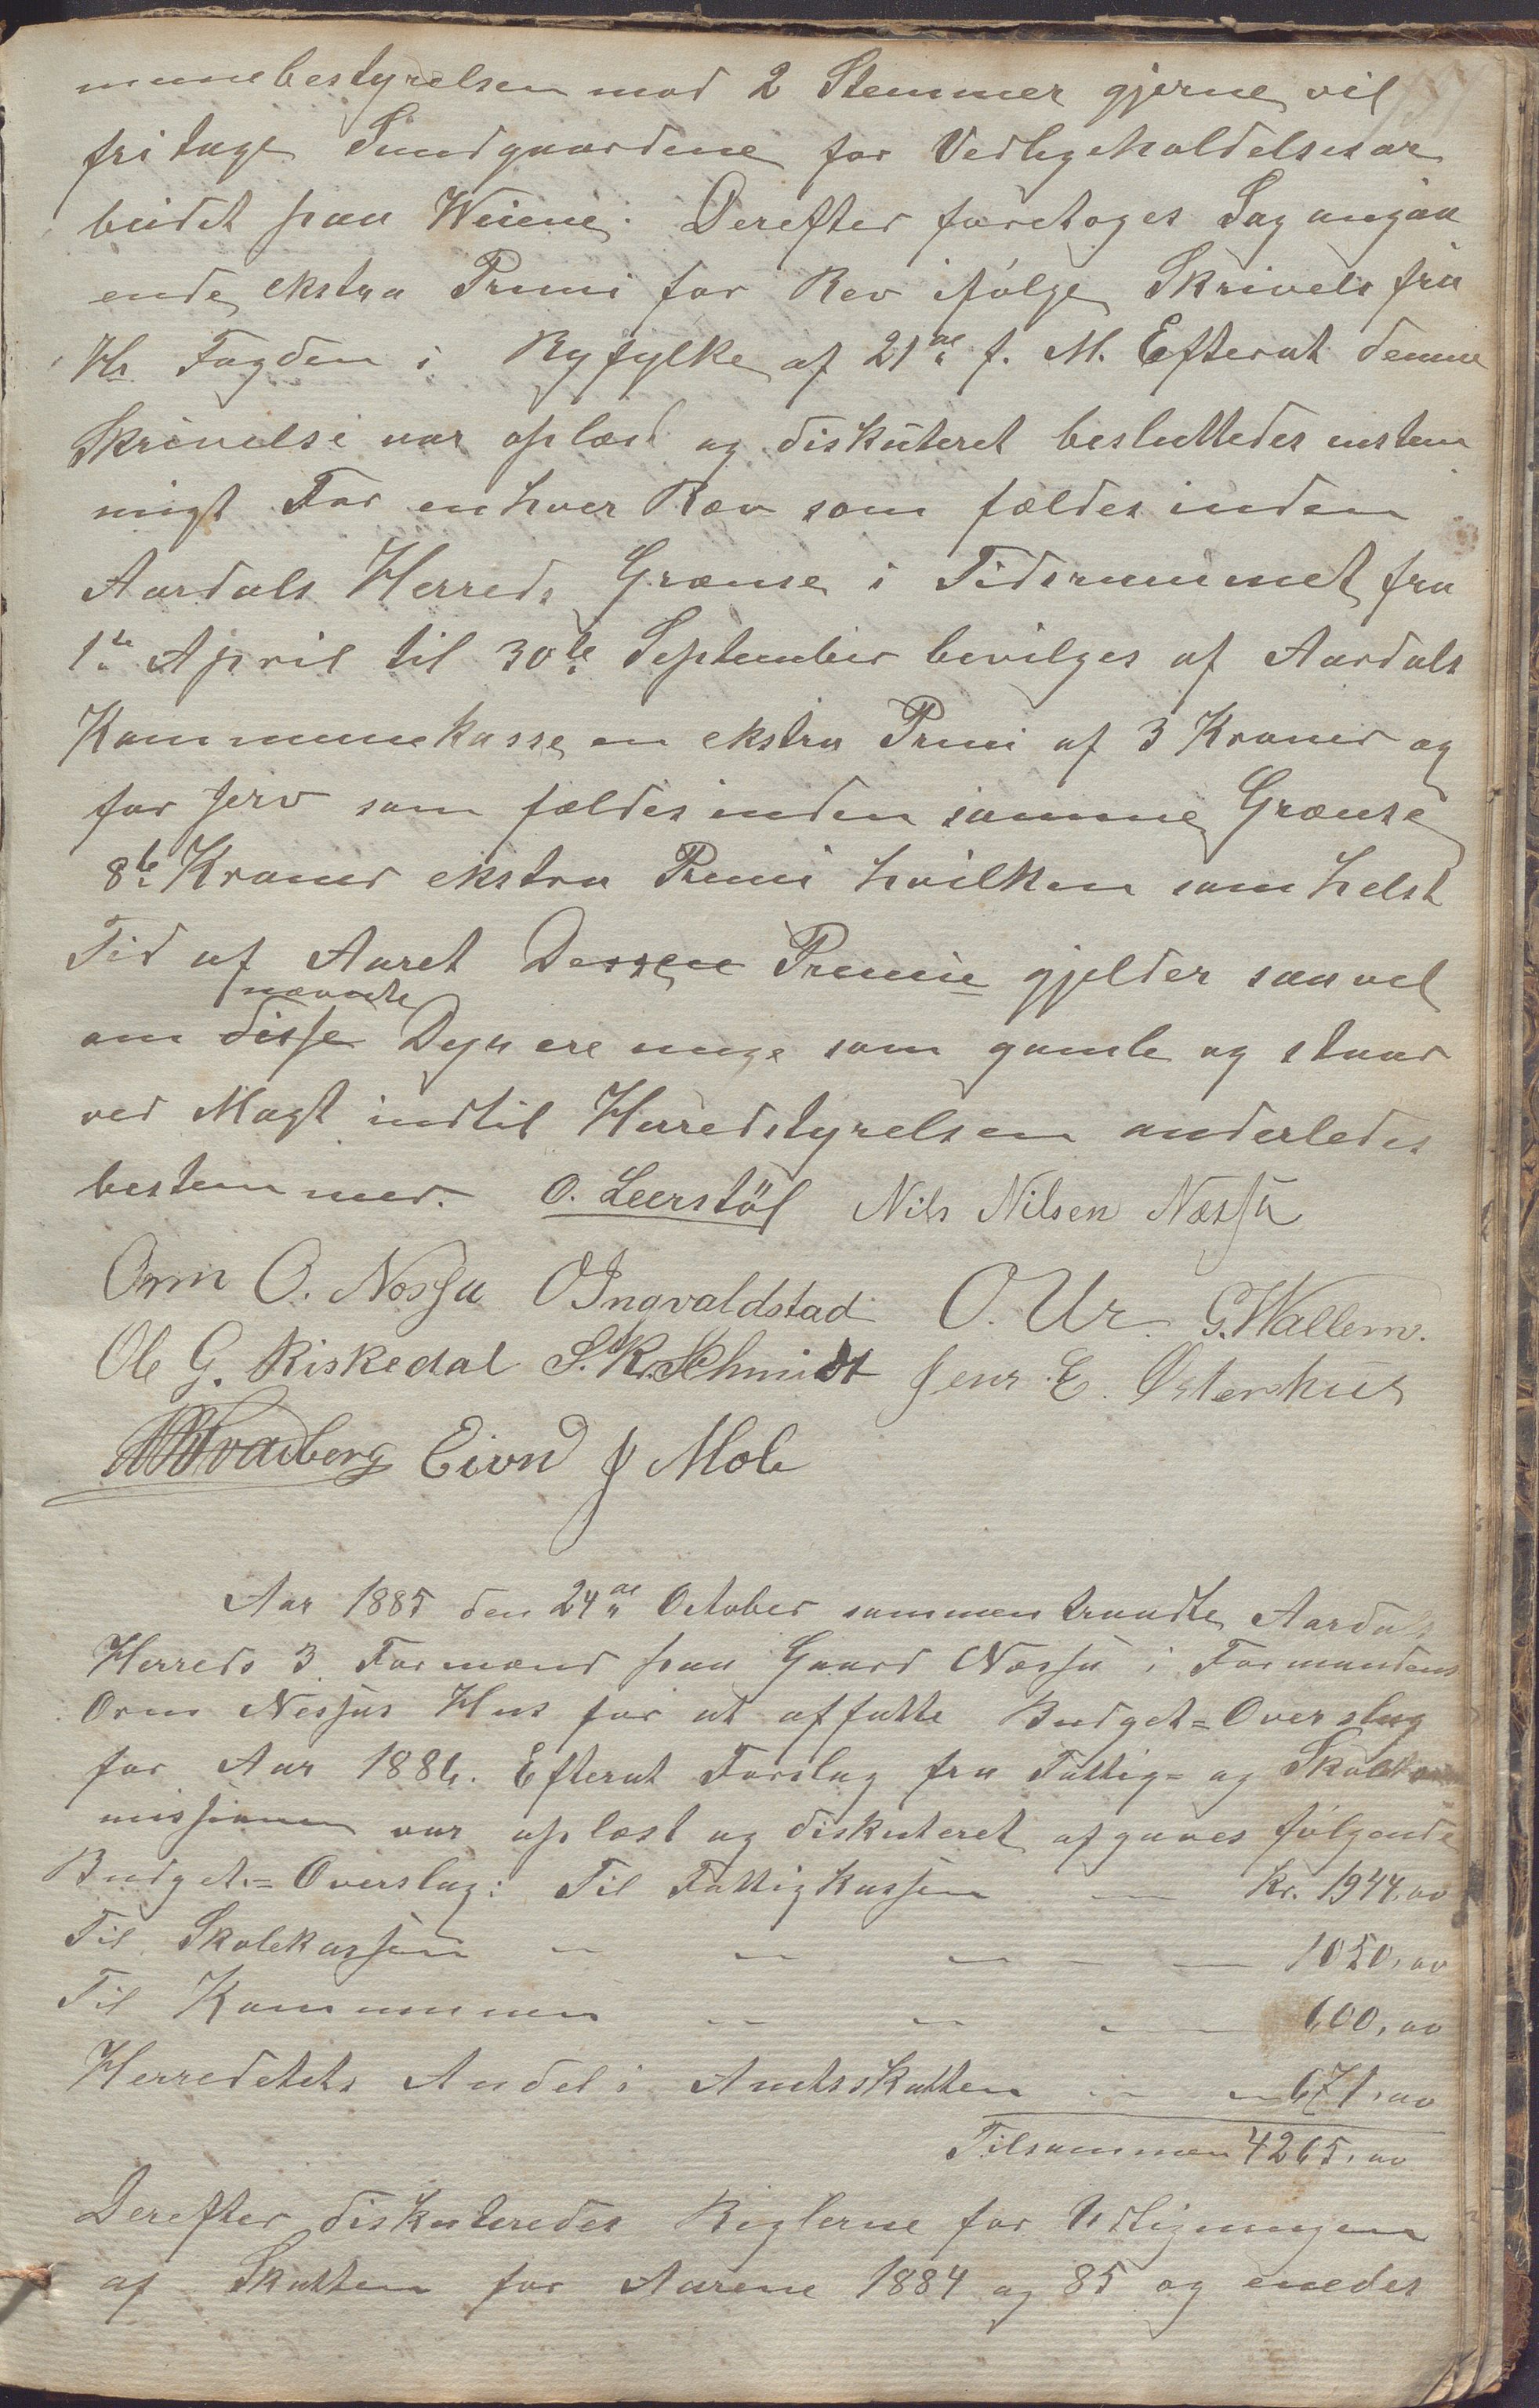 munebestyrelsen mod 2 Stemmer gjerne vil
fritage Sundgaardene for Vedligeholdelsesar
beidet paa Weiene. Derefter foretoges Sag angaa
ende ekstra Premi for Rev ifølge Skrivels fra
Hr Fogden i Ryfylke af 21de f. M. Efterat denne
Skrivelse var oplæst og diskuteret besluttedes enstem
migt For enhver Ræv som fældes inden
Aardals Herreds Grænse i Tidsrummet fra
1te April til 30te September bevilges af Aardals
Kommunekasse en ekstra Premi af 3 Kroner og
for Jerv som fældes inden samme Grænse
8te Kroner ekstra Premi hvilken som helst
Tid af Aaret Dessen Premie gjelder saavel
nævnte
om disse Dyr ere unge som gamle og staar
ved Magt indtil Herredstyrelsen anderledes
bestemmer. O. Leerstöl Nils Nilsen Næssa
Orm O. Nessa O Ingvaldstad O. Ur. G. Wallem.
Ole G. Riskedal S. K. Schmidt Jens E. Østerhus
Svadberg Eivn J Mæle
Aar 1885 den 24de October sammentraadte Aardals
Herreds 3 Formænd paa Gaard Nessa i Formandens
Orm Nessas Hus for at affatte Budget=Overslag
for Aar 1886. Efterat Forslag fra Fattig= og Skolekom
missionen var oplæst og diskuteret afgaves følgende
Budget=Overslag: Til Fattigkassen — Kr. 1944,00
Til Skolekassen — — — — — 1050,00
Til Kommunen — — — — 600,00
Herredets Andel i Amtsskatten — — 671,00
Tilsammen 4265,00
Derefter diskuteredes Reglerne for Udligningen
af Skatten for Aarene 1884 og 85 og enedes